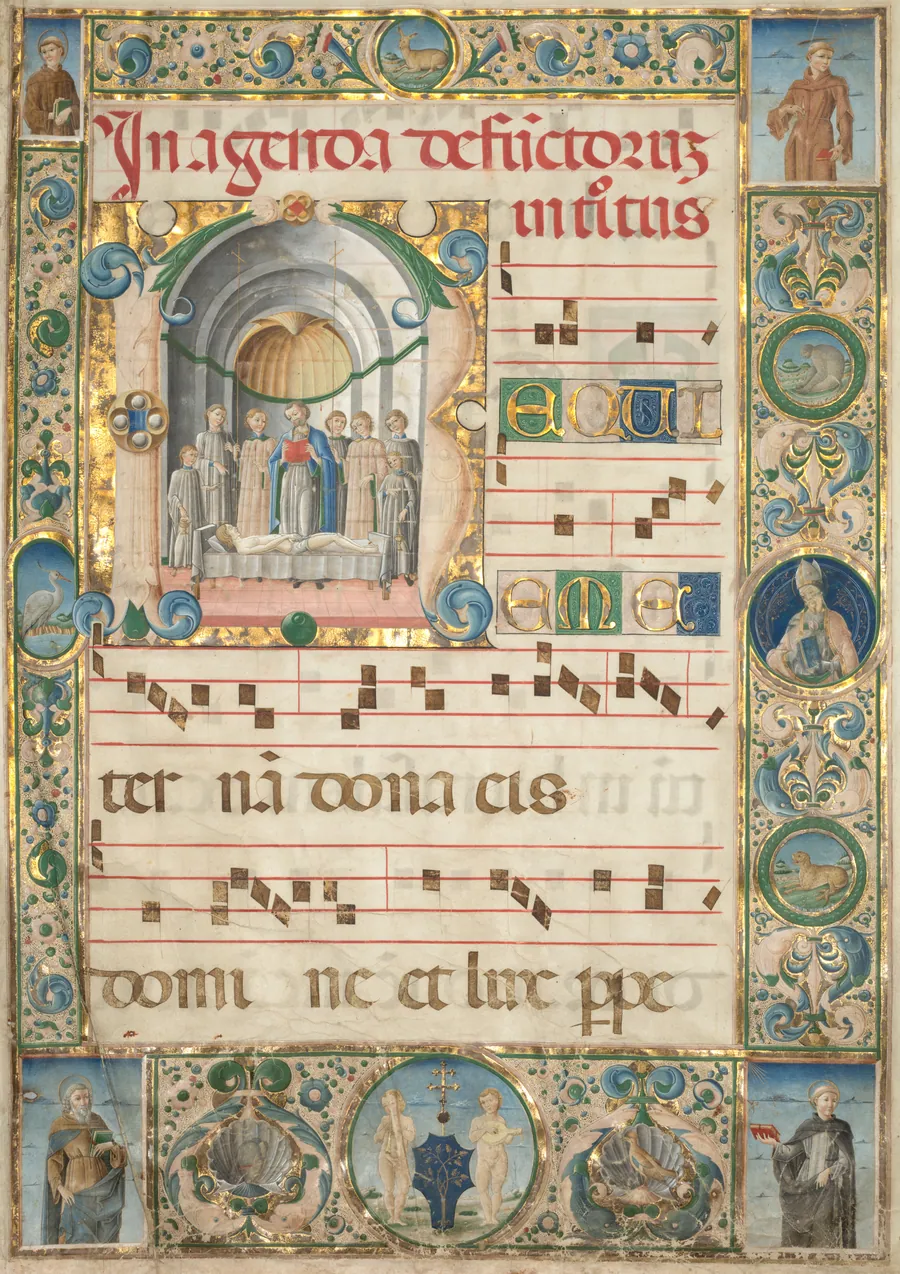 In agenda defūctoruȝ
introitus
REQUI
EM E
ter nā dona eis
domi ne et lux ppe